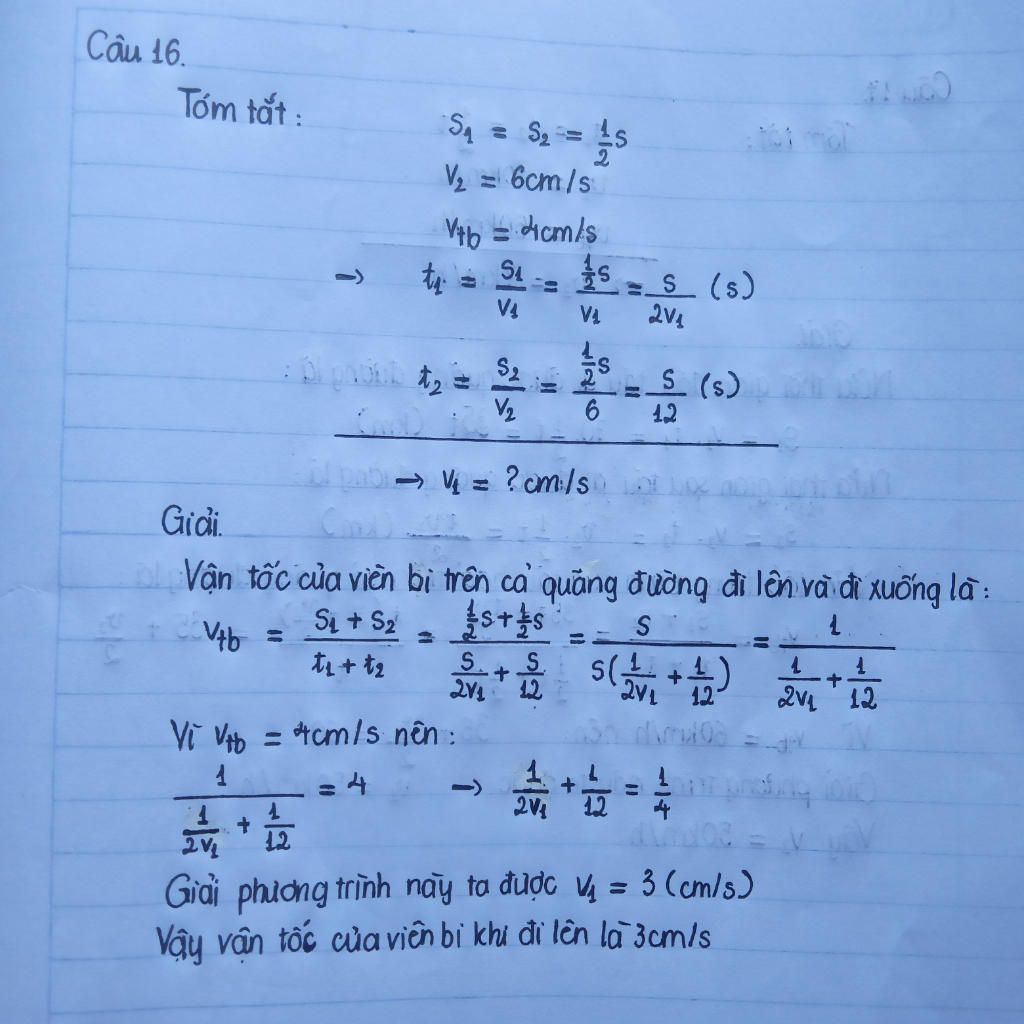 Câu 16.
Tóm tắt:
S₁ = S₂ = 1/2 S
V₂ = 6cm/s
Vtb = 4cm/s
→ t₁ = S₁/V₁ = (1/2 S)/V₁ = S/2V₁ (s)
t₂ = S₂/V₂ = (1/2 S)/6 = S/12 (s)
→ V₁ = ? cm/s
Giải.
Vận tốc của viên bi trên cả quãng đường đi lên và đi xuống là:
Vtb = (S₁ + S₂)/(t₁ + t₂) = (1/2 S + 1/2 S)/(S/2V₁ + S/12) = S/(S(1/2V₁ + 1/12)) = 1/(1/2V₁ + 1/12)
Vì Vtb = 4cm/s nên:
1/(1/2V₁ + 1/12) = 4 → 1/2V₁ + 1/12 = 1/4
Giải phương trình này ta được V₁ = 3 (cm/s)
Vậy vận tốc của viên bi khi đi lên là 3cm/s